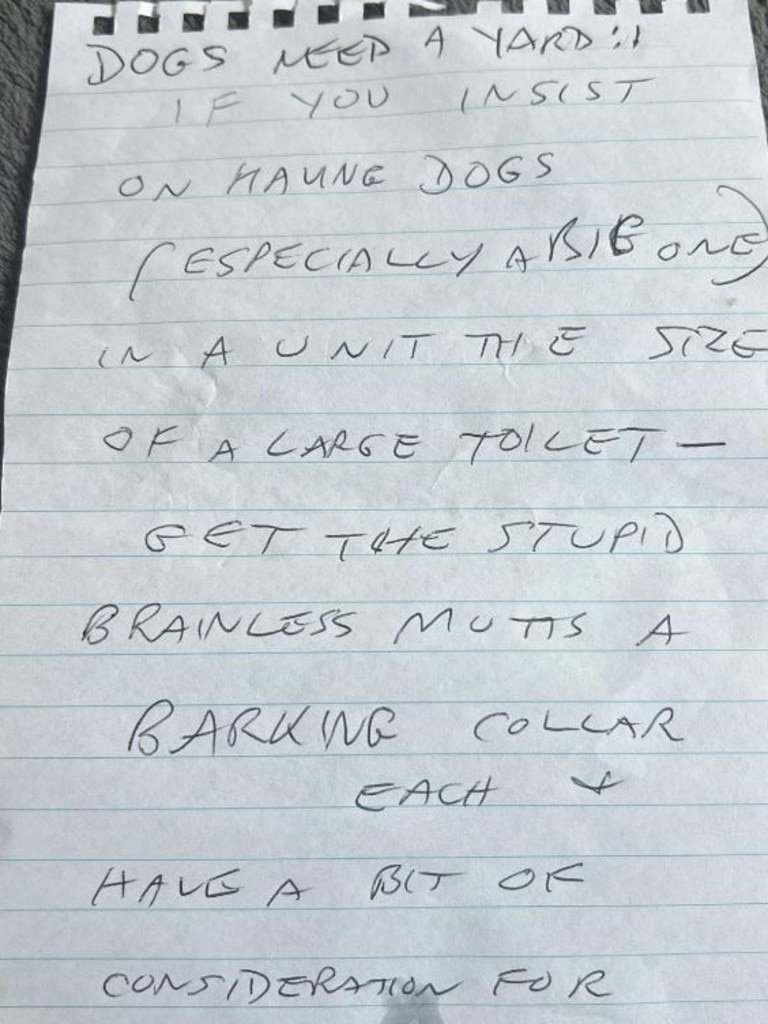 DOGS NEED A YARD!!
IF YOU INSIST
ON HAVING DOGS
(ESPECIALLY A BIG ONE)
IN A UNIT THE SIZE
OF A LARGE TOILET —
GET THE STUPID
BRAINLESS MUTTS A
BARKING COLLAR
EACH +
HAVE A BIT OF
CONSIDERATION FOR